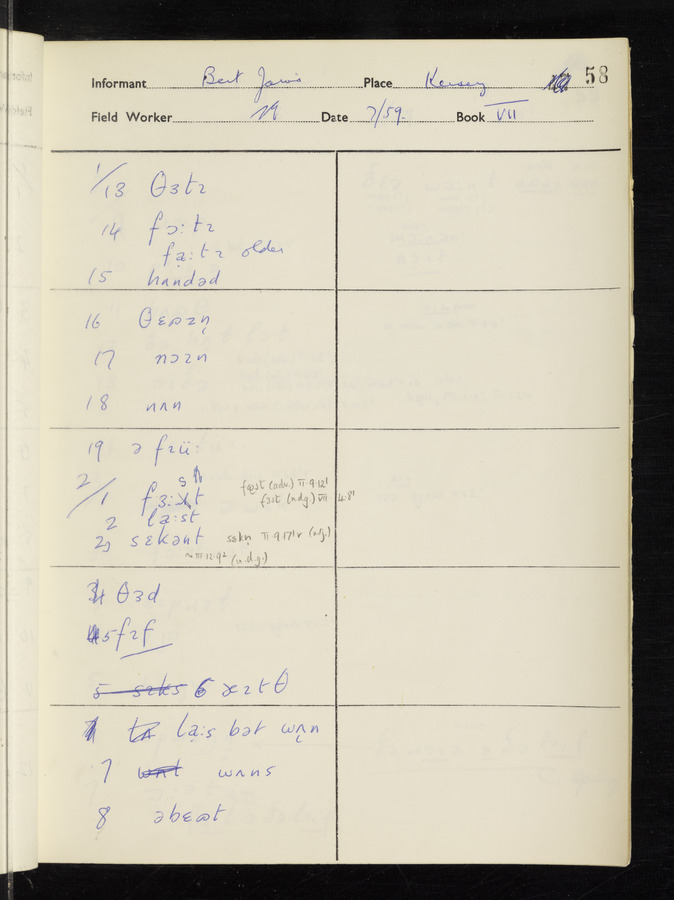 Informant Bert Jarvis Place Kersey 58
Field Worker Date 7/59. Book VII
1/13 θɜtɪ
14 fɔ:tɪ
fa̤:tɪ older
15 hʌndəd
16 θɛɷɪn̩
17 nɔɪn
18 nʌn
19 ə fɪü:
2/1 fɜ:st
fɜst (adv.) II.9.12¹
fɜst (n.d.g.) VII 4.8¹
2 la̤:st
3 sɛkənt sɛkn̩ II.9.17¹v (adj.)
~ III.12.9² (n.d.g.)
4 θɜd
5 fɪf
5 sɪks 6 ɛɪtθ
la̤:s bət wʌn
7 wʌns
8 əbɛɷt